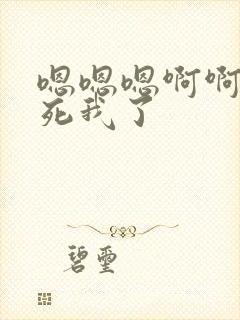 嗯嗯嗯啊啊
死我了
碧玺